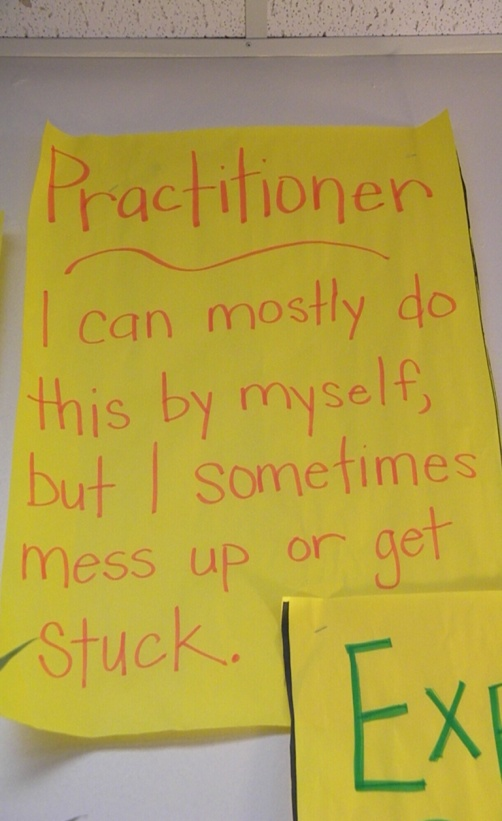 Practitioner
I can mostly do
this by myself,
but I sometimes
mess up or get
stuck.